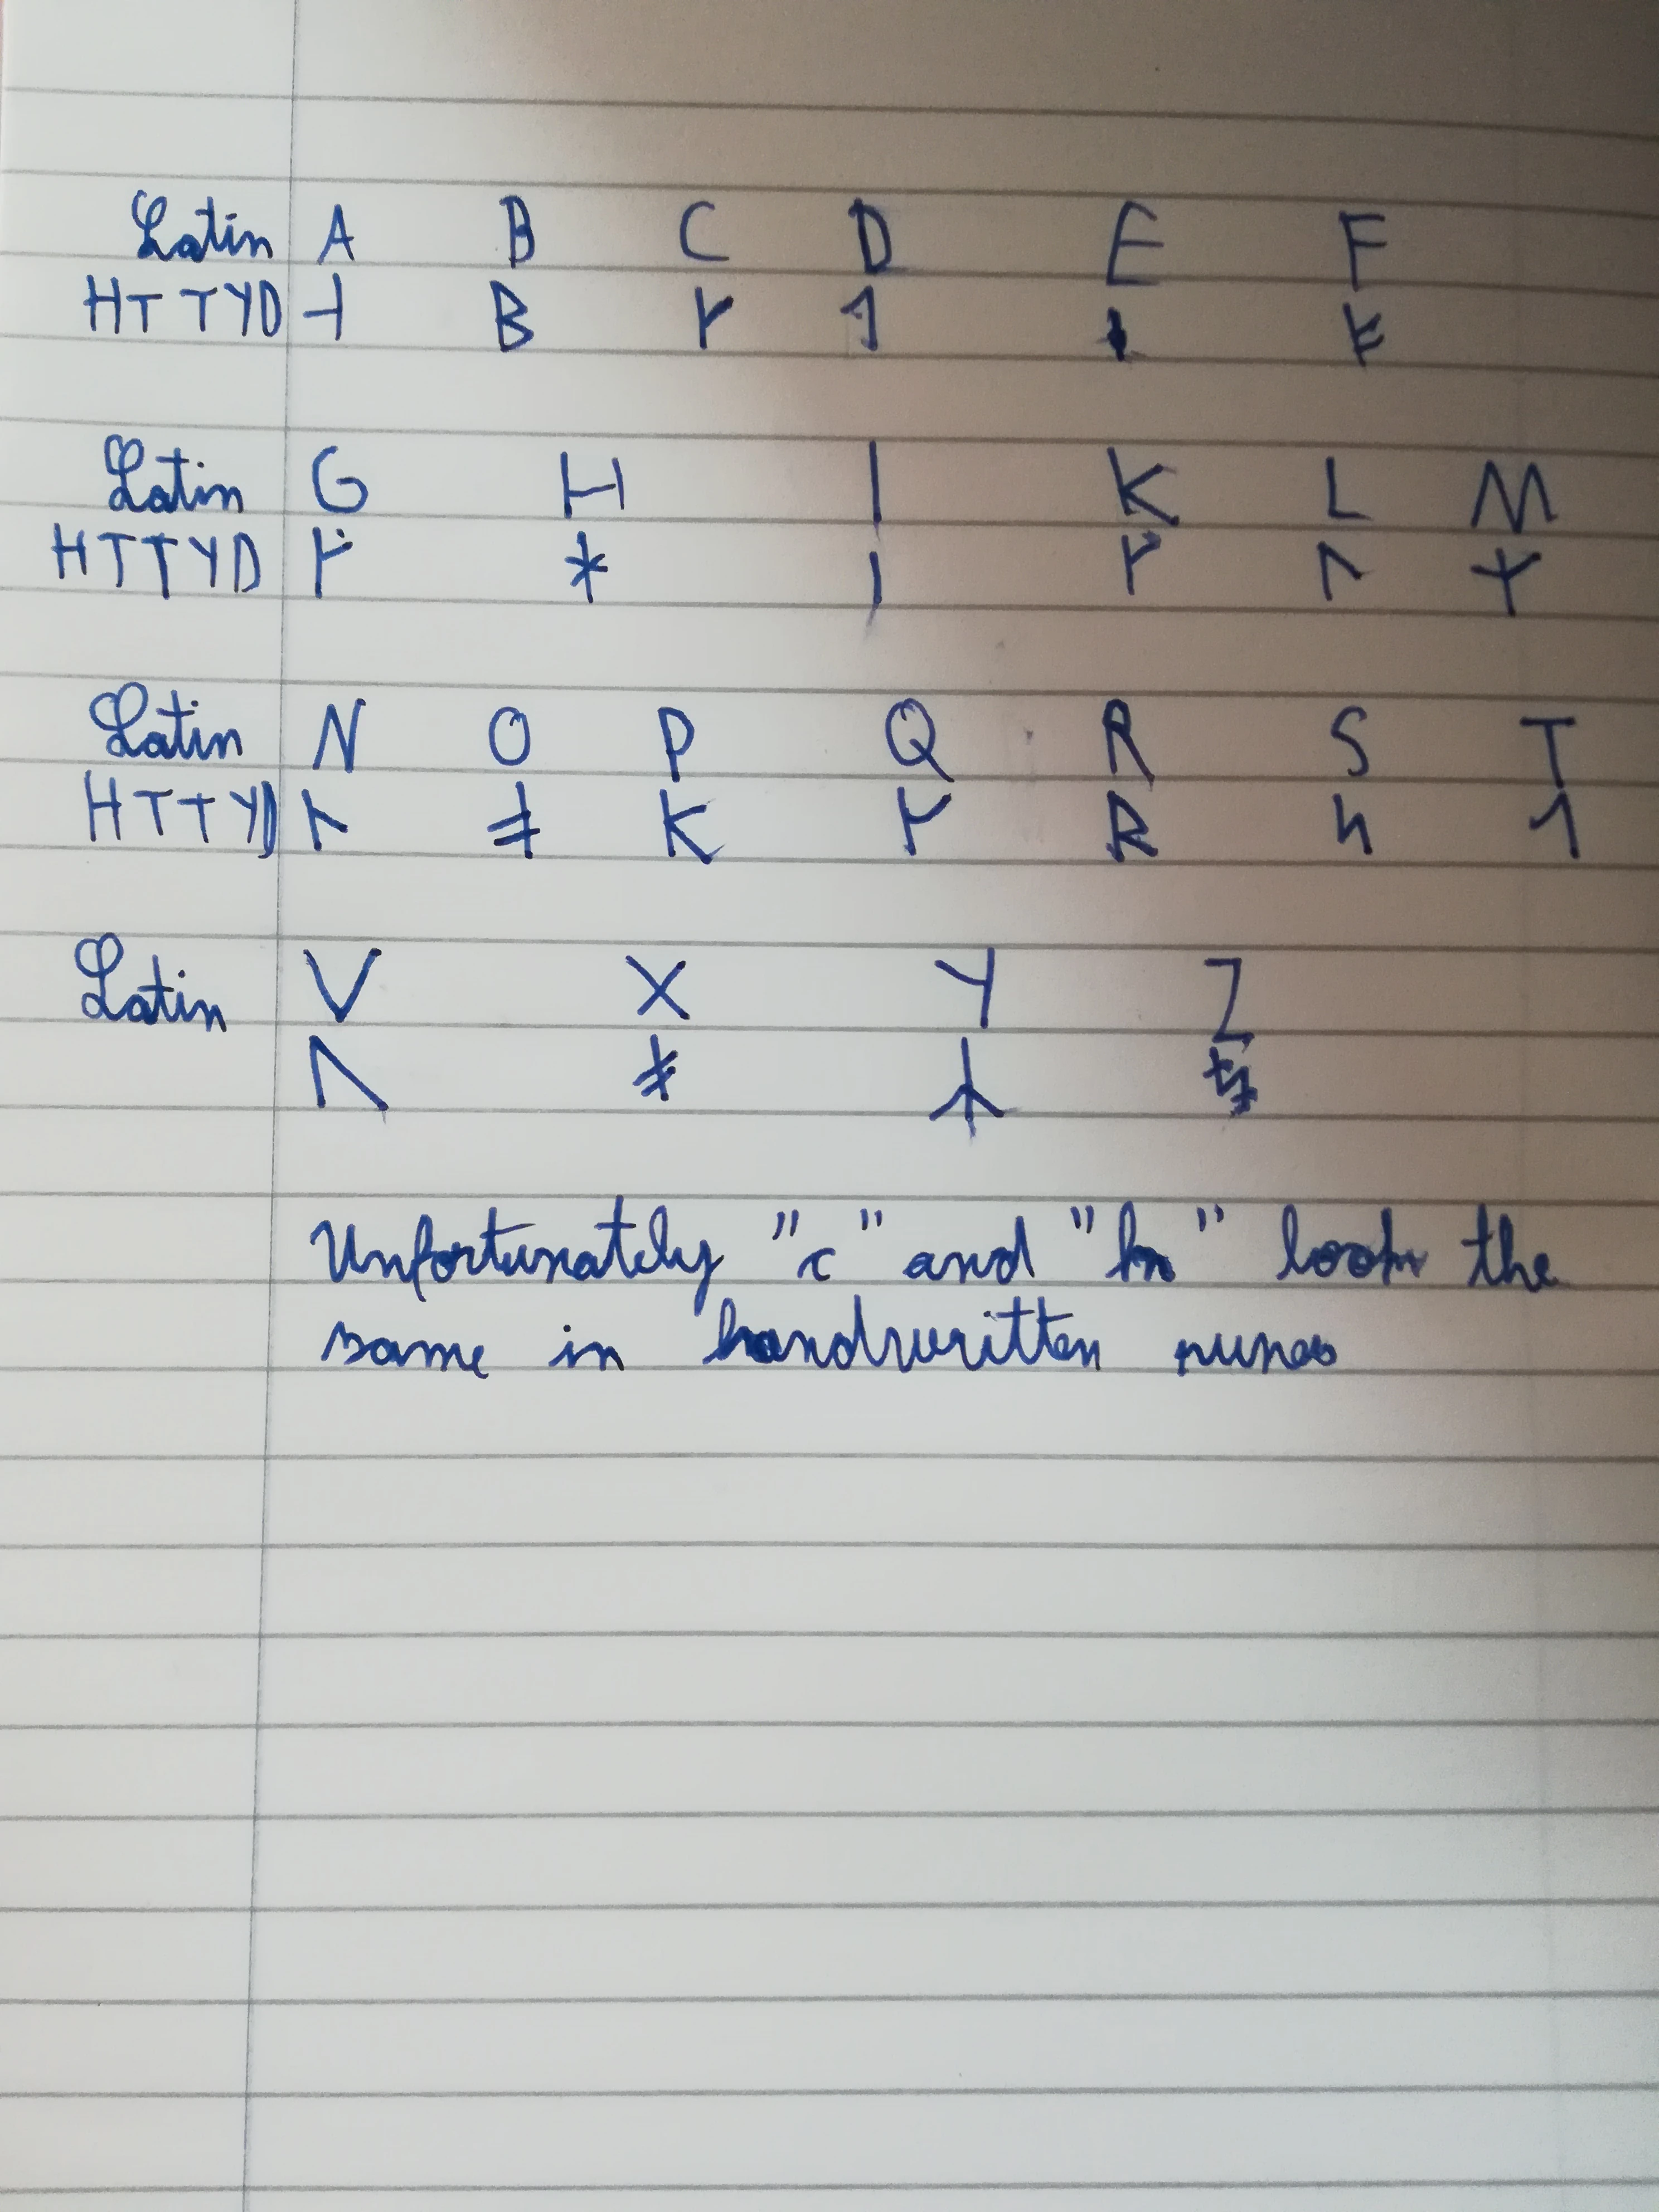 Latin A B C D E F
HTTYD ᛆ B ᚴ ᛐ ᚽ ᚠ
Latin G H I K L M
HTTYD ᚵ ᚼ ᛁ ᚴ ᛚ ᛉ
Latin N O P Q R S T
HTTYD ᚿ ᚮ K ᚴ R ᔦ ᛐ
Latin V X Y Z
ᚢ ᛦ
Unfortunately "c" and "k" look the
same in handwritten runes